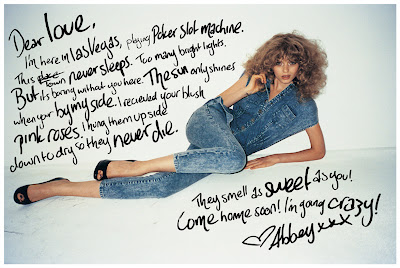 Dear love,
I'm here in las Vegas, playing Poker Slot machine.
This place town never sleeps. Too many bright lights.
But it's boring without you here. The sun only shines
when your by my side. I recieved your blush
pink roses. I hung them up side
down to dry so they never die.
They smell as sweet as you!
Come home soon! I'm going crazy!
♡Abbey xxx